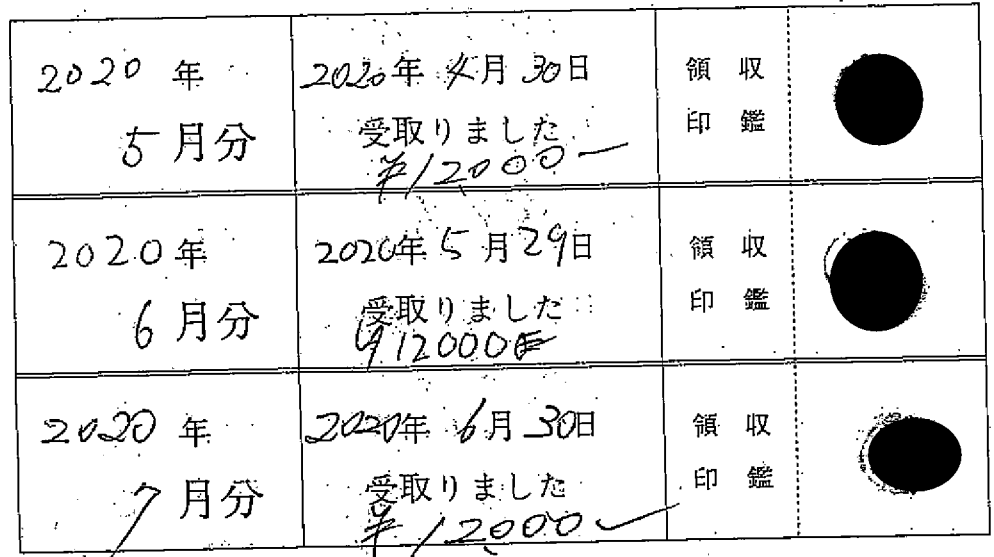 2020 年
5 月分
2020年 4月 30日
受取りました
¥12,000-
領 収
印 鑑
2020年
6 月分
2020年 5月29日
受取りました
¥12000
領 収
印 鑑
2020 年
7 月分
2020年 6月 30日
受取りました
¥12,000-
領 収
印 鑑